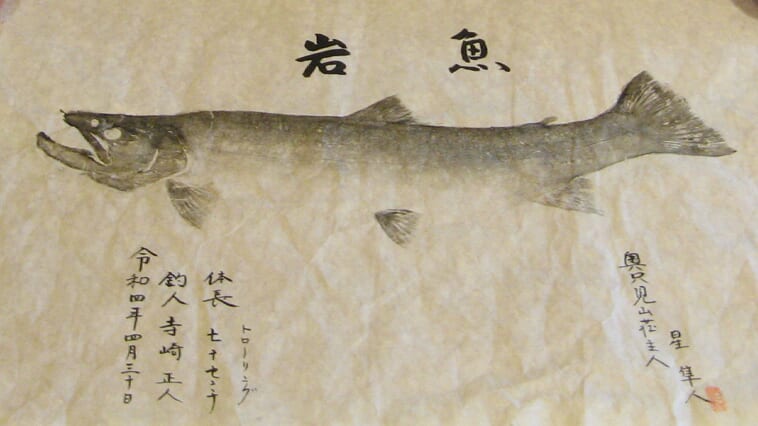 岩魚
星 隼人
奥只見山荘主人
トローリング
体長 七十センチ
釣人 寺崎 正人
令和四年四月三十日